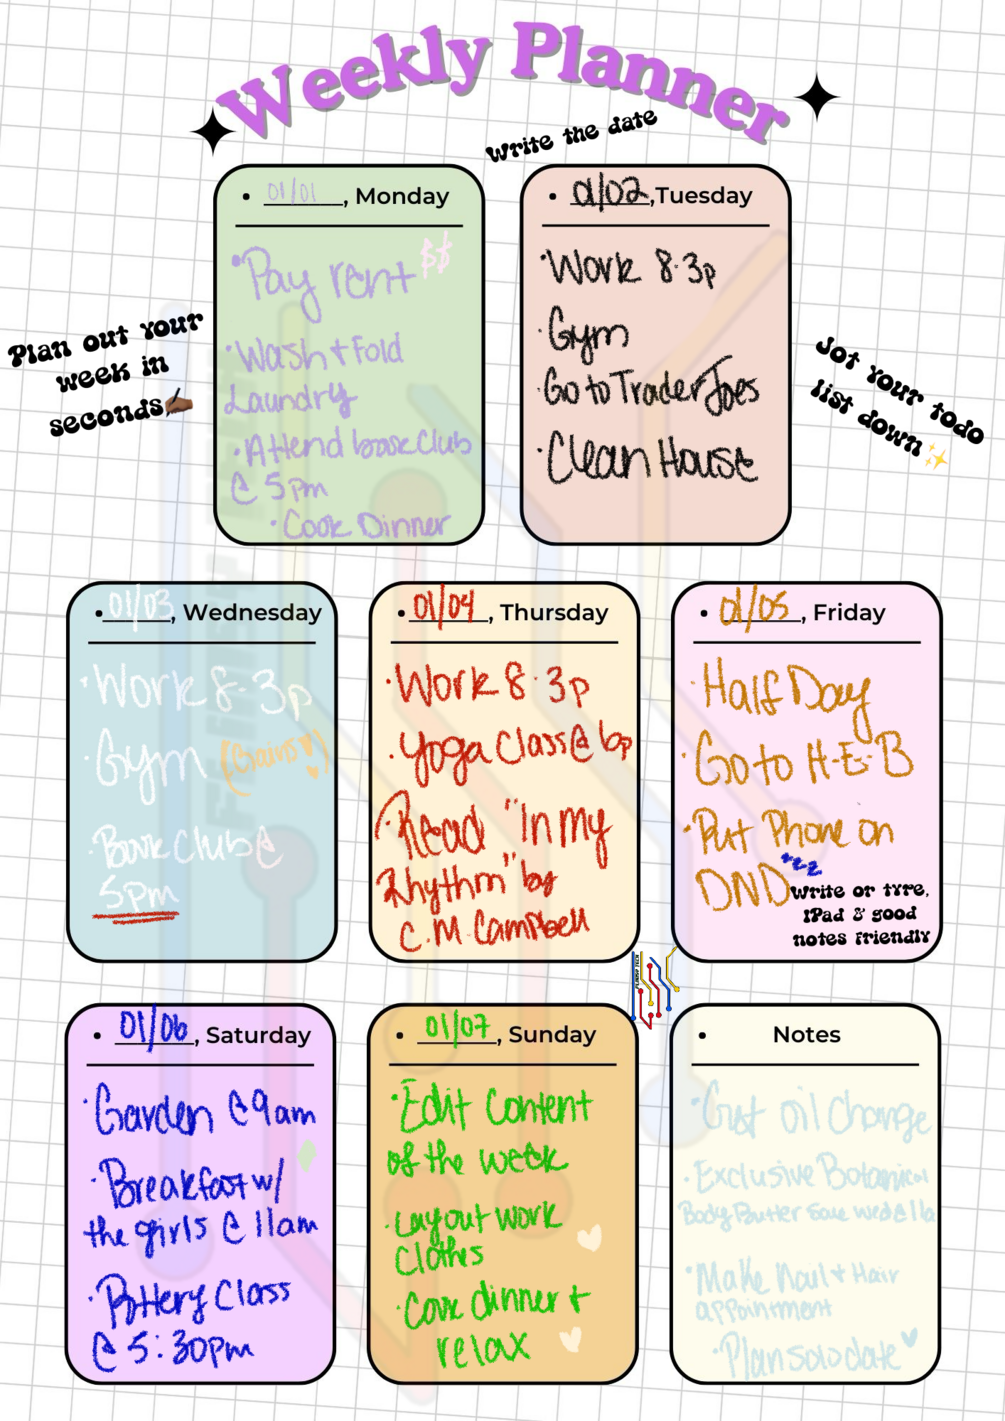 Weekly Planner
Write the date
• 01/01, Monday
• Pay rent $$
• Wash + Fold
Laundry
• Attend book Club
@ 5pm
• Cook Dinner
• 01/02, Tuesday
• Work 8-3p
• Gym
• Go to Trader Joes
• Clean House
Plan out your
week in
seconds✍🏾
Jot your todo
list down✨
• 01/03, Wednesday
• Work 8-3p
• Gym (Gains!)
• Book Club @
5pm
• 01/04, Thursday
• Work 8-3p
• Yoga Class @ 6p
• Read "In my
Rhythm" by
C.M. Campbell
• 01/05, Friday
• Half Day
• Go to H-E-B
• Put Phone on
DND zzz
Write or type,
iPad & good
notes friendly
• 01/06, Saturday
• Garden @ 9am
• Breakfast w/
the girls @ 11am
• Pottery Class
@ 5:30pm
• 01/07, Sunday
• Edit Content
of the week
• Layout work
Clothes
• Cook dinner +
relax
• Notes
• Get oil change
• Exclusive Botanical
Body Butter Sale Wed @ 11a
• Make Nail + Hair
appointment
• Plan solo date